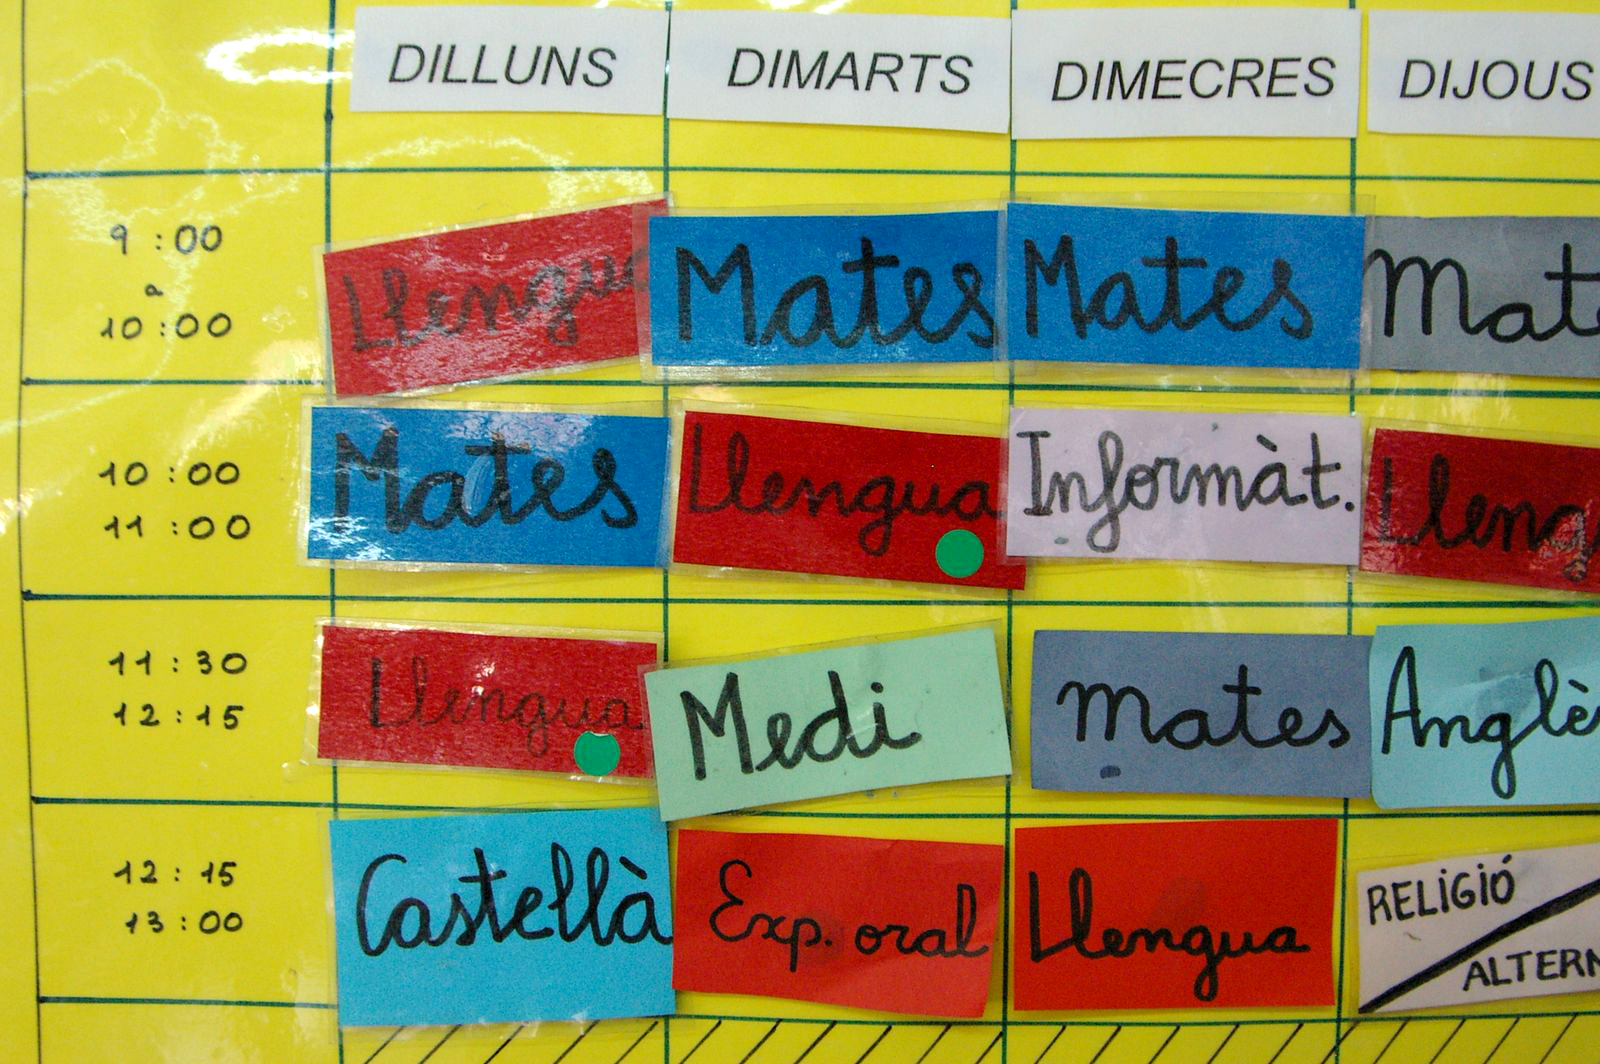 DILLUNS DIMARTS DIMECRES DIJOUS
9:00
a
10:00
Llengua Mates Mates Mat
10:00
11:00
Mates Llengua Informàt. Lleng
11:30
12:15
Llengua Medi Mates Anglè
12:15
13:00
Castellà Exp. oral Llengua RELIGIÓ
ALTERN